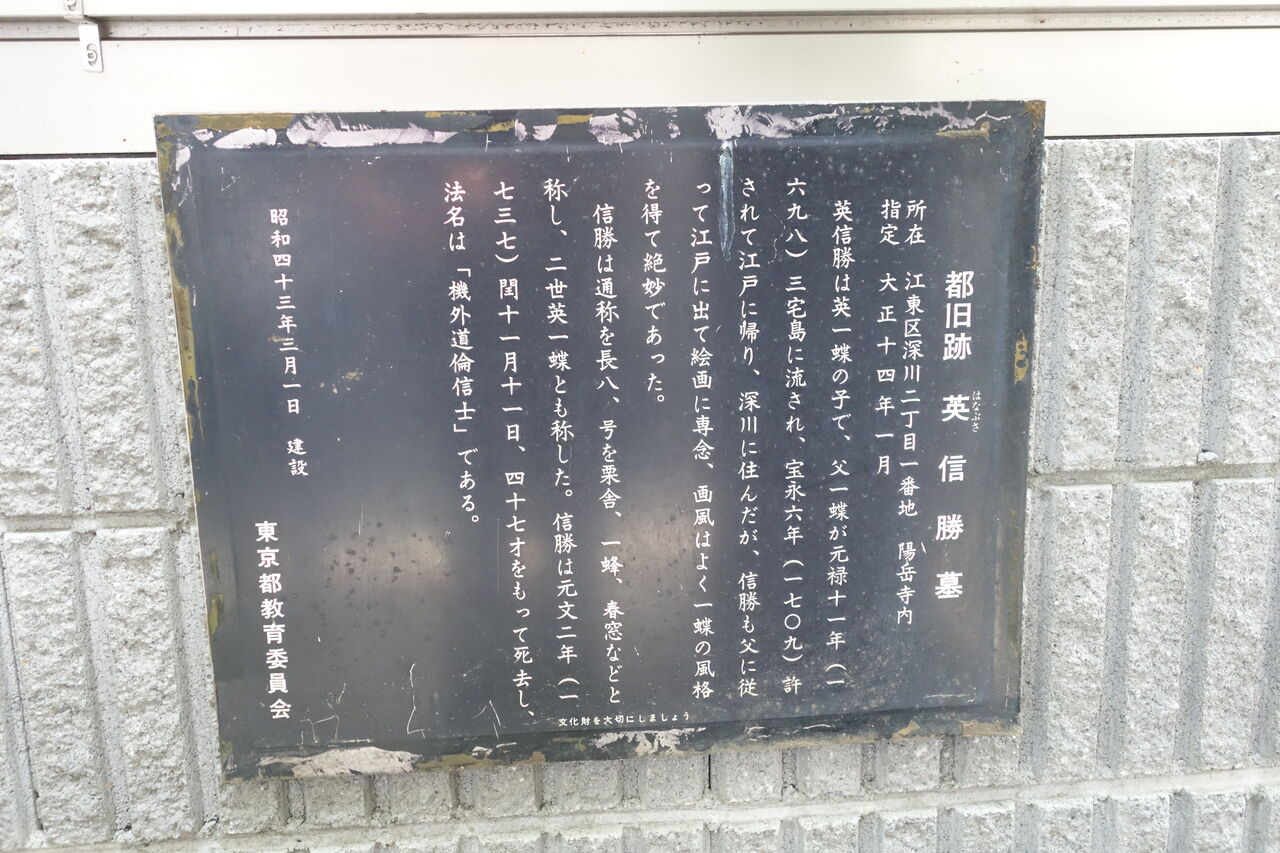 都旧跡 英信勝墓
はなぶさ
所在 江東区深川二丁目一番地 陽岳寺内
指定 大正十四年一月
英信勝は英一蝶の子で、父一蝶が元禄十一年(一
六九八)三宅島に流され、宝永六年(一七〇九)許
されて江戸に帰り、深川に住んだが、信勝も父に従
って江戸に出て絵画に専念、画風はよく一蝶の風格
を得て絶妙であった。
信勝は通称を長八、号を栗舎、一蜂、春窓などと
称し、二世英一蝶とも称した。信勝は元文二年(一
七三七)閏十一月十一日、四十七才をもって死去し、
法名は「機外道倫信士」である。
昭和四十三年三月一日 建設
東京都教育委員会
文化財を大切にしましょう